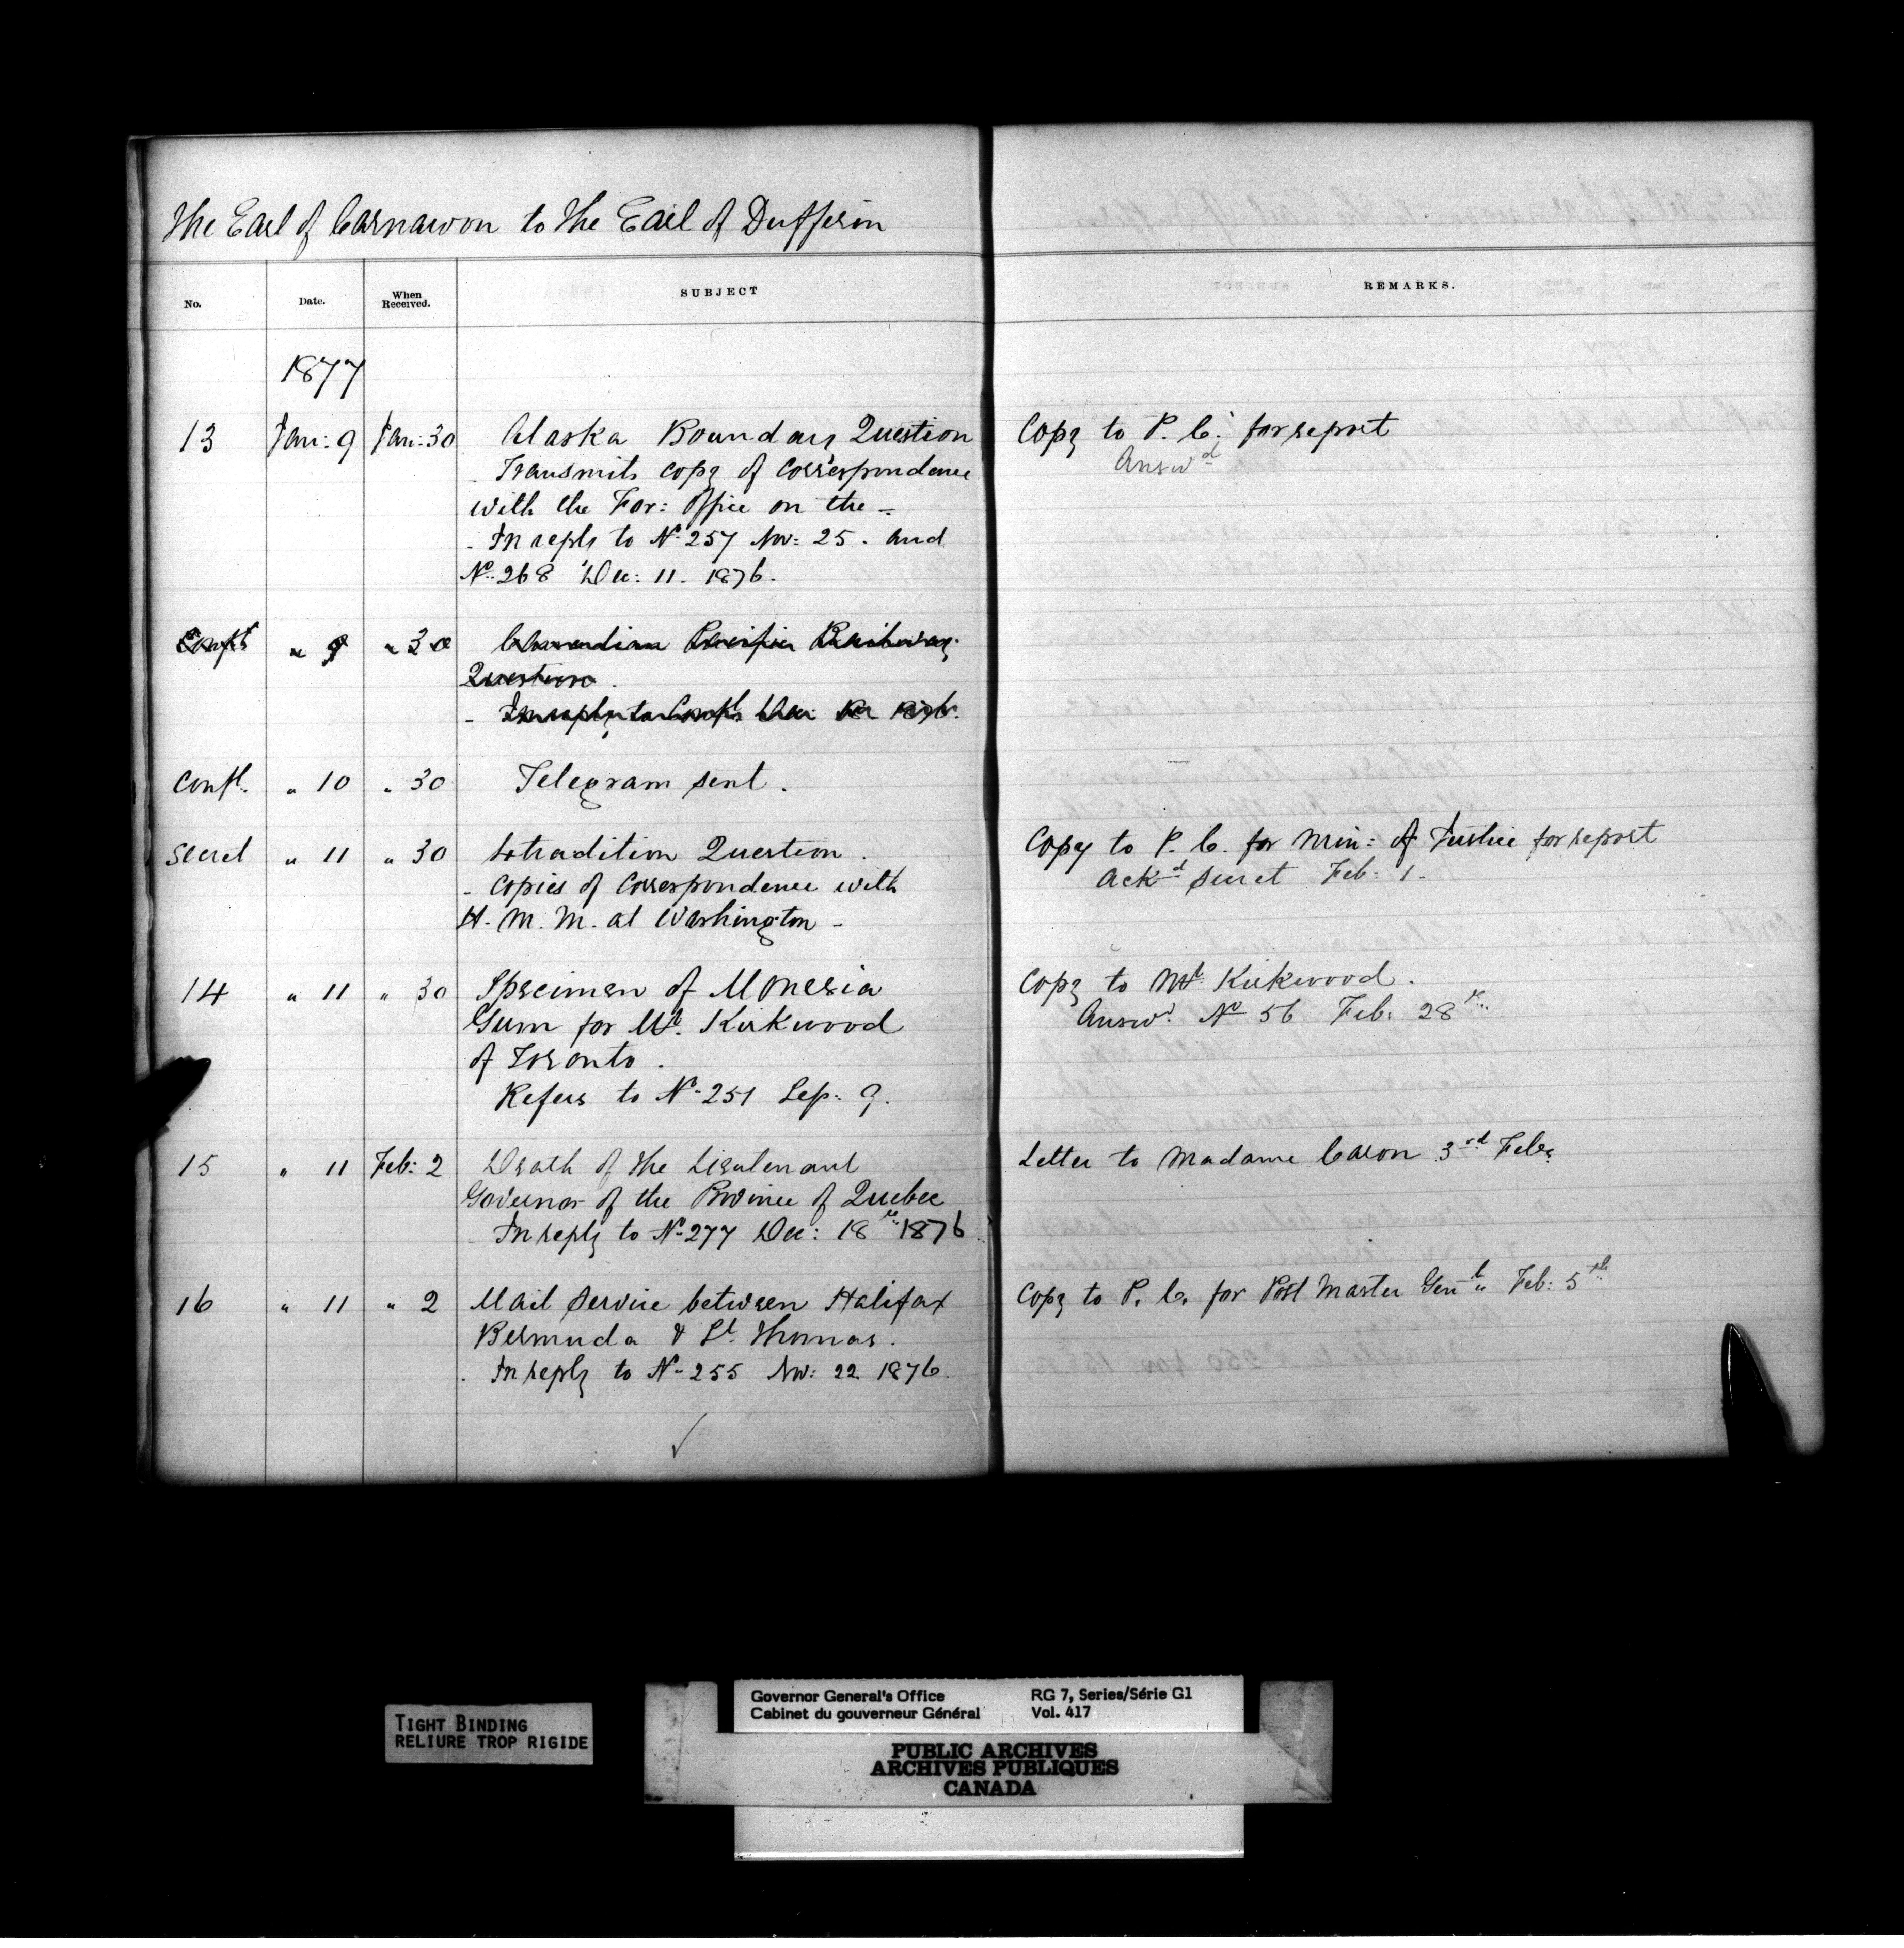 The Earl of Carnarvon to the Earl of Dufferin
No. Date. When Received. SUBJECT REMARKS.
1877
13 Jan: 9 Jan: 30 Alaska Boundary Question Copy to P. C. for report
Transmits copy of correspondence Answd
with the For: Office on the –
- In reply to No. 257 Nov: 25. and
No. 268 Dec: 11. 1876.
Confl " 9 " 30 Canadian Pacific Railway
Question.
- In reply to Confl Dec: 1876.
Confl. " 10 " 30 Telegram sent.
Secret " 11 " 30 Extradition Question. Copy to P. C. for Min: of Justice for report
- Copies of Correspondence with Ackd Secret Feb: 1.
H. M. M. at Washington -
14 " 11 " 30 Specimen of Monesia Copy to Mr. Kirkwood.
Gum for Mr. Kirkwood Answd. No 56 Feb: 28th
of Toronto.
Refers to No. 251 Sep: 9.
15 " 11 Feb: 2 Death of the Lieutenant Letter to Madame Caron 3rd Feby
Governor of the Province of Quebec
In reply to No. 277 Dec: 18th 1876
16 " 11 " 2 Mail Service between Halifax Copy to P. C. for Post Master Genl " Feb: 5th
Bermuda & St. Thomas.
- In reply to No. 255 Nov: 22 1876.
TIGHT BINDING
RELIURE TROP RIGIDE
Governor General's Office RG 7, Series/Série G1
Cabinet du gouverneur Général Vol. 417
PUBLIC ARCHIVES
ARCHIVES PUBLIQUES
CANADA